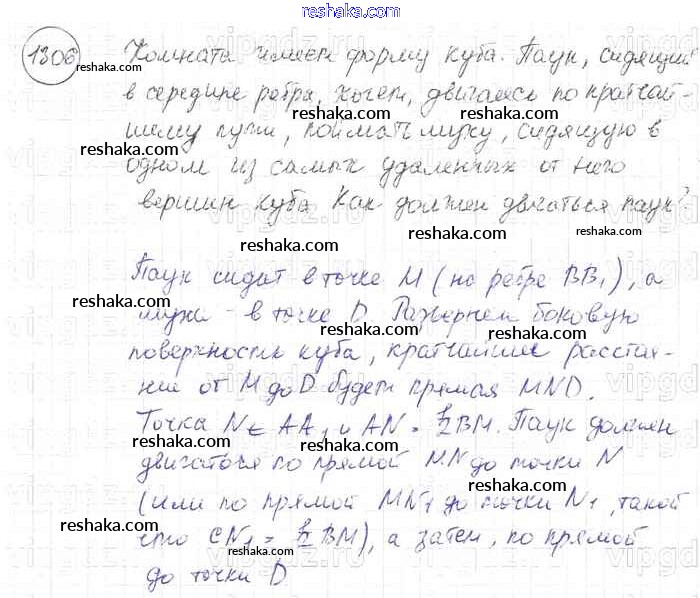 reshaka.com
1306
reshaka.com
Комната имеет форму куба. Паук, сидящий
reshaka.com
в середине ребра, хочет, двигаясь по кратчай-
reshaka.com
шему пути, поймать муху, сидящую в
одном из самых удаленных от него
reshaka.com
вершин куба. Как должен двигаться паук?
reshaka.com
reshaka.com
Паук сидит в точке M (на ребре BB₁), а
reshaka.com
муха - в точке D. Развернем боковую
reshaka.com
поверхность куба, кратчайшее расстоя-
reshaka.com
ние от M до D будет прямая MND.
reshaka.com
Точка N ∈ AA₁ и AN = ½ BM. Паук должен
reshaka.com
двигаться по прямой MN до точки N
reshaka.com
(или по прямой MN₁ до точки N₁, такой
reshaka.com
что CN₁ = ½ BM), а затем, по прямой
reshaka.com
до точки D
reshaka.com